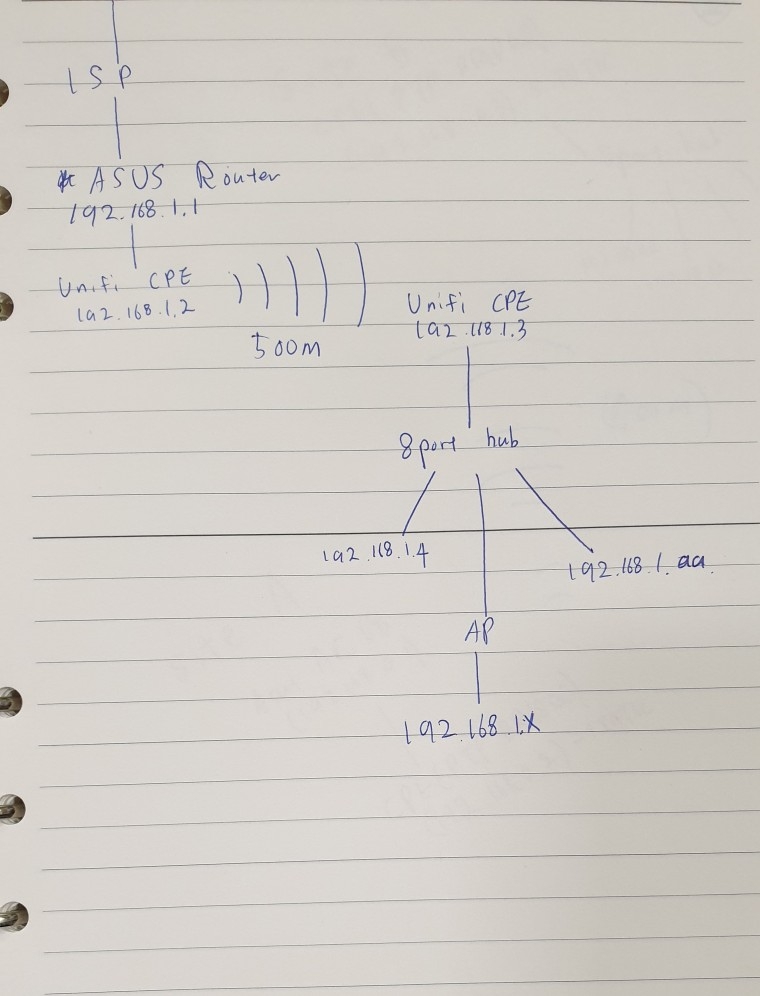 ISP
* ASUS Router
192.168.1.1
Unifi CPE
192.168.1.2
500m
Unifi CPE
192.168.1.3
8port hub
192.168.1.4
192.168.1.aa.
AP
192.168.1.X